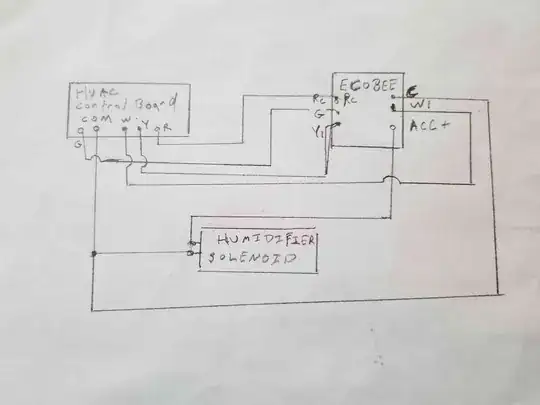 HVAC
Control Board
COM W Y R
G
ECOBEE
Rc Rc
G
Y1
C
W1
ACC+
HUMIDIFIER
SOLENOID